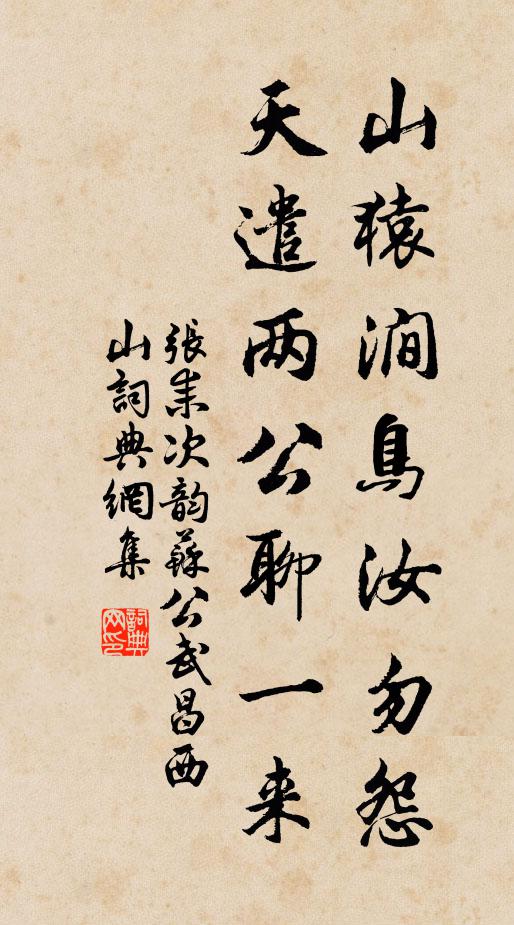 山猿澗鳥汝勿怨
天遣两公聊一来
張耒次韵蘇公武昌西
山詞典網集
詞典
网印